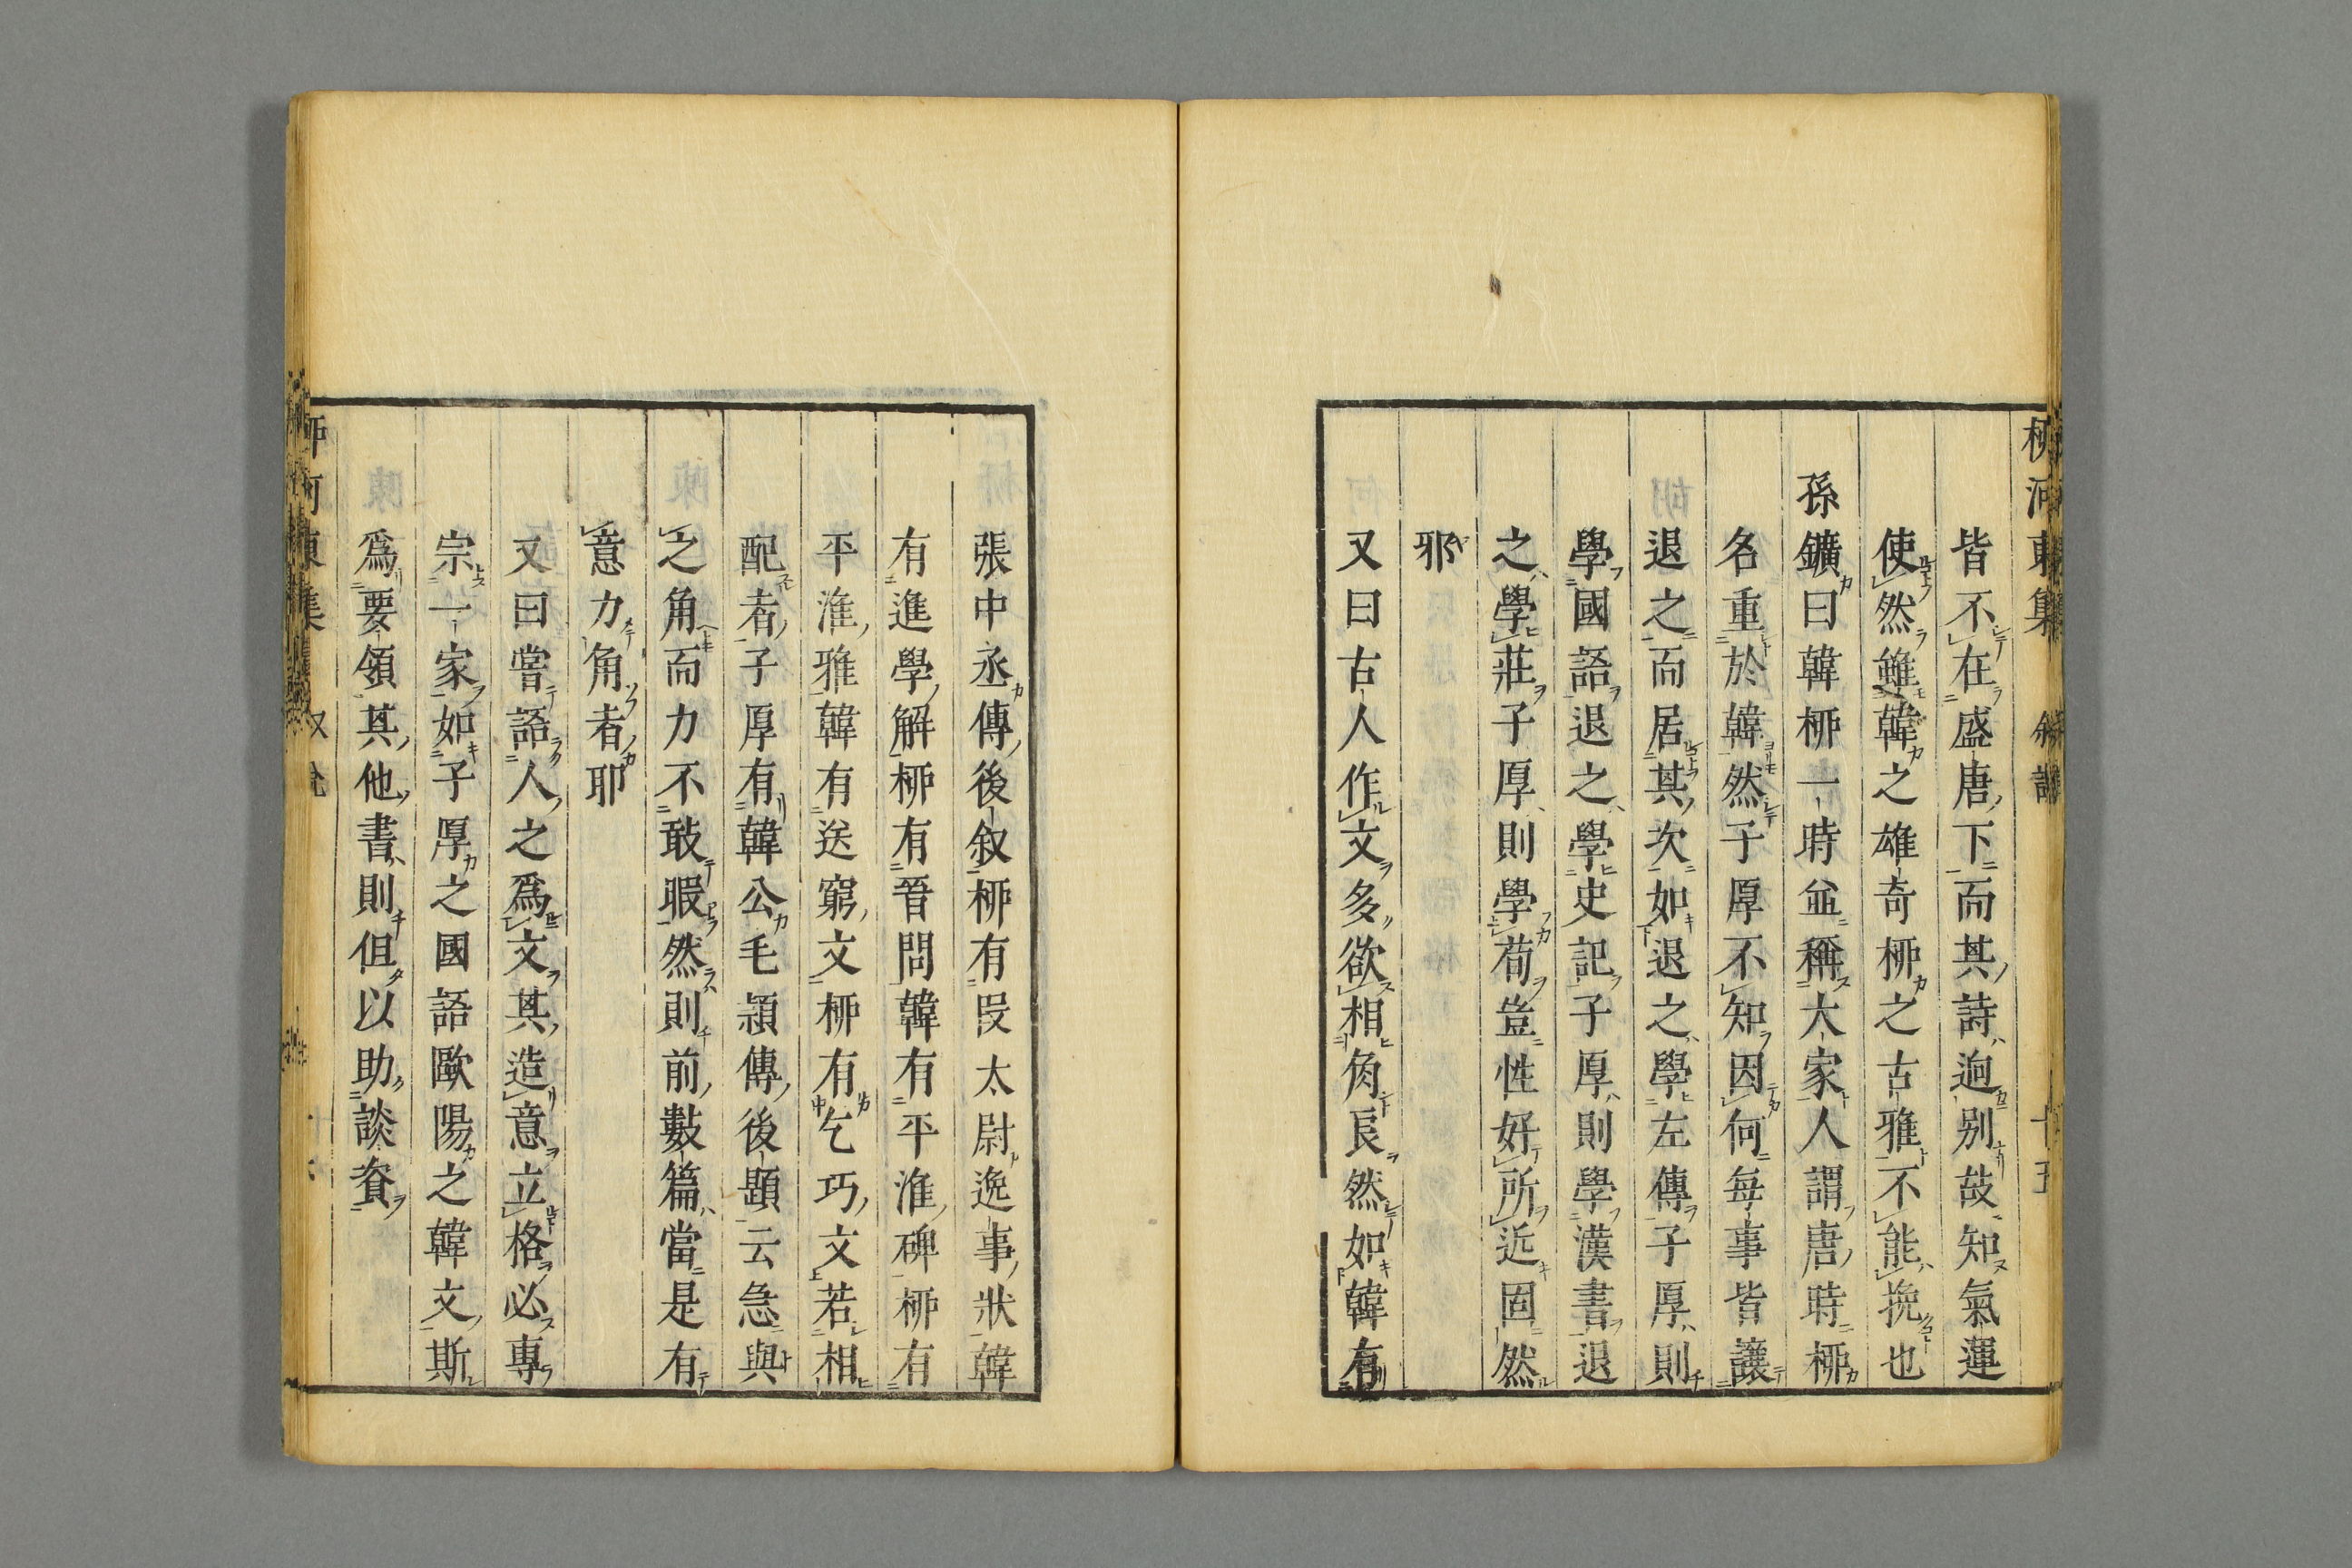 柳河東集 叙說 十五
皆不在盛唐下而其詩迥别故知氣運
使然雖韓之雄奇栁之古雅不能挽也
孫鑛曰韓栁一時並稱大家人謂唐時栁
名重於韓然子厚不知因何每事皆讓
退之而居其次如退之學左傳子厚則
學國語退之學史記子厚則學漢書退
之學莊子厚則學荀豈性好所近固然
邪
又曰古人作文多欲相角長然如韓有
張中丞傳後叙栁有叚太尉逸事狀韓
有進學解栁有晉問韓有平淮碑栁有
平淮雅韓有送窮文栁有乞巧文若相
配者子厚有韓公毛頴傳後題云急與
之角而力不敢暇然則前數篇當是有
意力角者耶
又曰嘗語人之爲文其造意立格必專
宗一家如子厚之國語歐陽之韓文斯
爲要領其他書則但以助談資